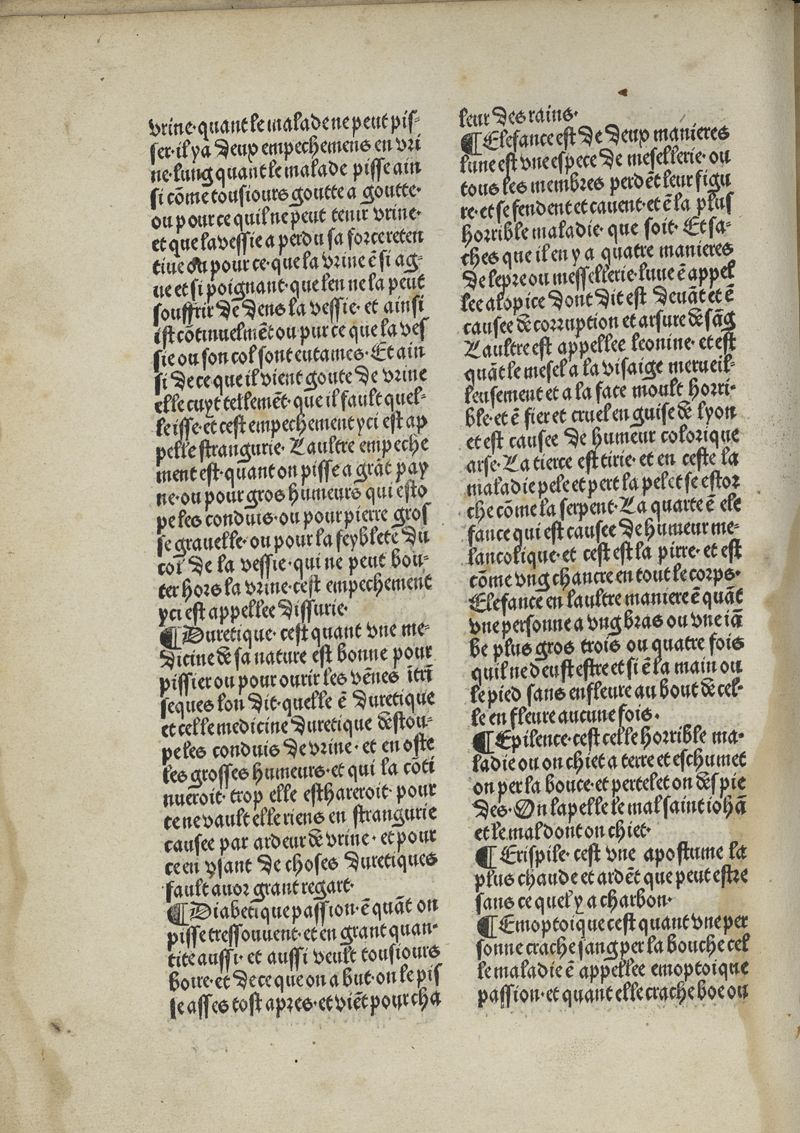 vrine·quant le malade ne peut pis-
ser·il y a deux empechemens en vri
ne·lung quant le malade pisse ain
si cõme tousiours goutte a goutte·
ou pour ce quil ne peut tenir vrine·
et que la vessie a perdu sa force reten
tiue ou pour ce·que la vrine ẽ si ag-
ue et si poignant·que len ne la peut
souffrir dẽ dens la vessie·et ainsi
ist cõtinuelmẽt ou pur ce que la ves
sie ou son col sont entames·Et ain
si de ce que il vient goute de vrine
elle cuyt tellemẽt·que il fault quel-
le isse·et cest empechement yci est ap
pelle strangurie·Laultre empeche
ment est·quant on pisse a grãt pay
ne·ou pour gros humeurs qui esto
pe les conduis·ou pour pierre gros
se grauelle·ou pour la feyblete ̃ du
col de la vessie·qui ne peut bou-
ter hors la vrine·cest empechement
yci est appellee dissurie·
¶Duretique·cest quant vne me-
dicine de sa nature est bonne pour
pissier ou pour ourir les vẽnes ĩtrĩ
seques lon dit·quelle ẽ duretique
et celle medicine duretique destou-
pe les conduis de vrine·et en oste
les grosses humeurs·et qui la cõti
nueroit·trop elle esthareroit·pour
te ne vault elle riens en strangurie
causee par ardeur de vrine·et pour
ce en vsant de choses duretiques
fault auor grant regart·
¶Diabetique passion·ẽ quãt on
pisse tressouuent·et en grant quan-
tite aussi·et aussi veult tousiours
boire·et de ce que on a but·on le pis
se asses tost apres·et viẽt pour cha
leur des rains·
¶Elefance est de deux manieres
lune est vne espece de mesellerie·ou
tous les membres perdẽt leur figu
re·et se fendent et cauent·et ẽ la plus
horrible maladie·que soit·Et sa-
ches que il en y a quatre manieres
de lepre ou messellerie·lune ẽ appel
lee alopice dont dit est deuãt et ẽ
causee de corruption et arsure de sãg
Laultre est appellee leonine·et est
quãt le mesel a la visaige merueil-
leusement et a la face moult horri-
ble·et ẽ fier et cruel en guise de lyon
et est causee de humeur colorique
arse·La tierce est tirie·et en ceste la
maladie pele et pert la pel et se estor
che cõme la serpent·La quarte ẽ ele
fance qui est causee de humeur me-
lancolique·et cest est la pirre·et est
cõme vng chancre en tout le corps·
Elefance en laultre maniere ẽ quãt
vne personne a vng bras ou vne iã
be plus gros trois ou quatre fois
quil ne deust estre et si ẽ la main ou
le pied sans enfleure au bout de cel-
le enfleure aucune fois·
¶Epilence·cest celle horrible ma-
ladie ou on chiet a terre et eschumet
on per la bouce·et pertelet on des pie
des·On lapelle le mal saint iohã
et le mal dont on chiet·
¶Erispile·cest vne apostume la
plus chaude et ardẽt que peut estre
sans ce quel y a charbon·
¶Emoptoique cest quant vne per
sonne crache sang per la bouche cel
le maladie ẽ appellee emoptoique
passion·et quant elle crache boe ou